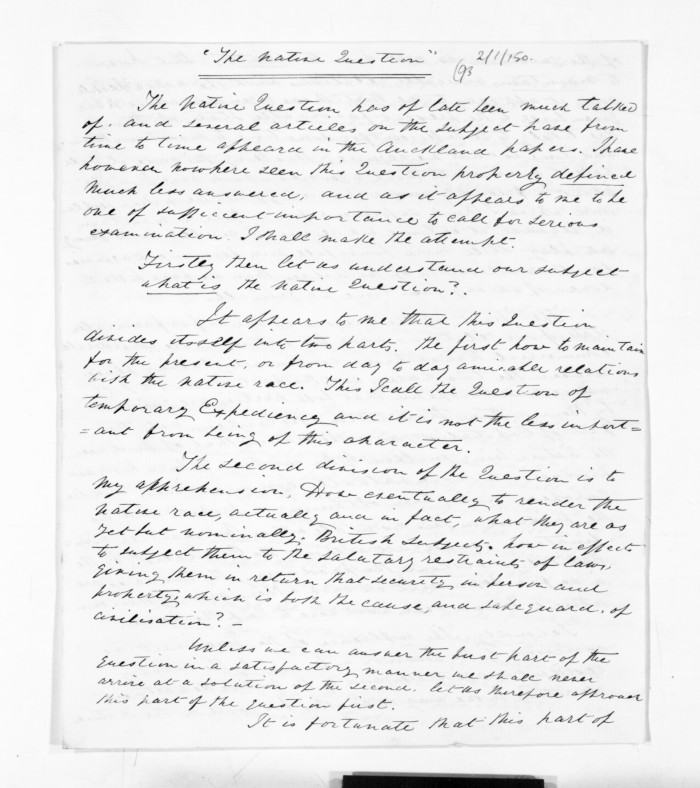 "The Native Question"
2/1/150.
(93
The Native Question has of late been much talked
of. and several articles on the subject have from
time to time appeared in the Auckland papers. I have
however nowhere seen this Question properly defined
much less answered, and as it appears to me to be
one of sufficient importance to call for serious
examination. I shall make the attempt.
Firstly then let us understand our subject
what is the Native Question?.
It appears to me that this Question
divides itself into two parts. The first how to maintain
for the present, or from day to day amicable relations
with the native race. This I call the Question of
temporary Expediency and it is not the less import=
=ant from being of this character.
The second division of the Question is to
my apprehension, How eventually to render the
native race, actually and in fact, what they are as
yet but nominally. British subjects. how in effect
to subject them to the salutary restraints of law,
giving them in return that security in person and
property, which is both the cause, and safeguard, of
civilisation? –
Unless we can answer the first part of the
question in a satisfactory manner we shall never
arrive at a solution of the second. let us therefore approach
this part of the question first.
It is fortunate that this part of